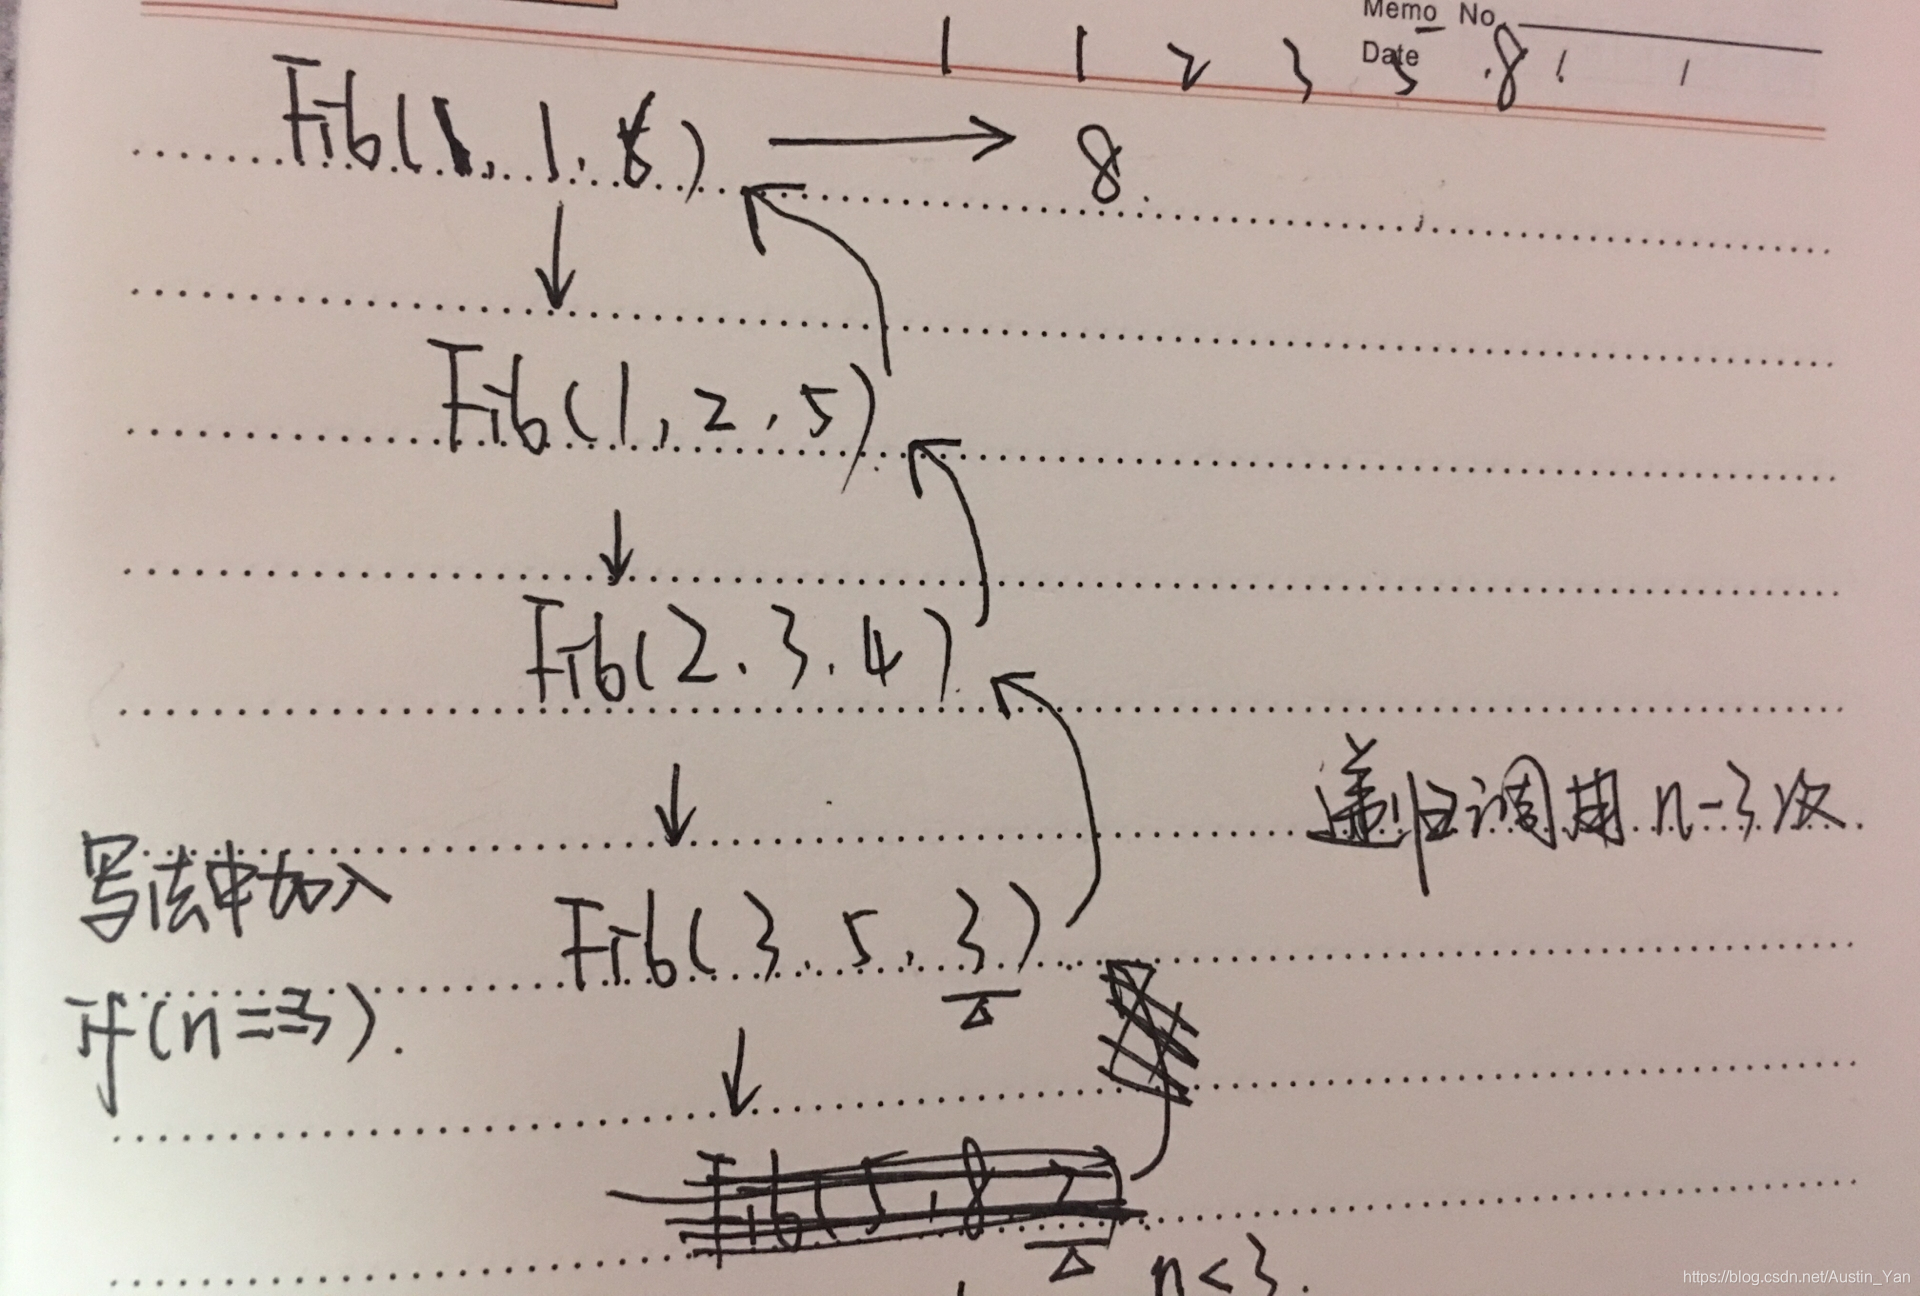 Memo No.
Date
1 1 2 3 5 8
Fib(1, 1, 6) → 8
Fib(1, 2, 5)
Fib(2, 3, 4)
递归调用 n-3次
写法中加入
if(n==3).
Fib(3, 5, 3)
Fib(5, 8, 2)
n<3.
https://blog.csdn.net/Austin_Yan